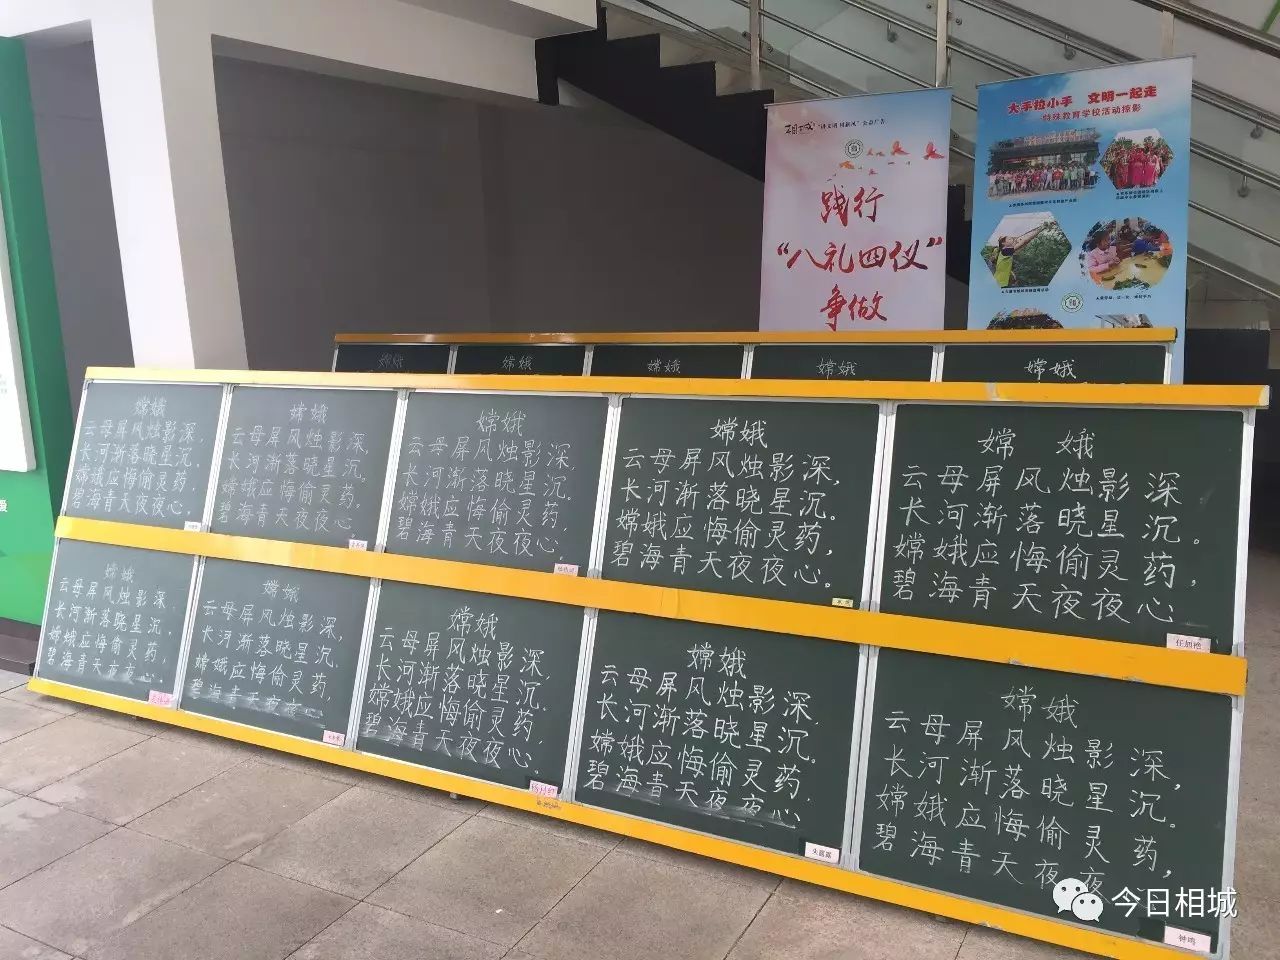 相城
践行
“八礼四仪”
争做
大手拉小手 文明一起走
特殊教育学校活动掠影
嫦娥
嫦娥
嫦娥
嫦娥
嫦娥
嫦娥
云母屏风烛影深，
长河渐落晓星沉。
嫦娥应悔偷灵药，
碧海青天夜夜心。
嫦娥
云母屏风烛影深，
长河渐落晓星沉。
嫦娥应悔偷灵药，
碧海青天夜夜心。
嫦娥
云母屏风烛影深，
长河渐落晓星沉。
嫦娥应悔偷灵药，
碧海青天夜夜心。
嫦娥
云母屏风烛影深，
长河渐落晓星沉。
嫦娥应悔偷灵药，
碧海青天夜夜心。
嫦娥
云母屏风烛影深
长河渐落晓星沉。
嫦娥应悔偷灵药，
碧海青天夜夜心
任旭艳
嫦娥
云母屏风烛影深，
长河渐落晓星沉。
嫦娥应悔偷灵药，
碧海青天夜夜心。
嫦娥
云母屏风烛影深，
长河渐落晓星沉。
嫦娥应悔偷灵药，
碧海青天夜夜心
嫦娥
云母屏风烛影深，
长河渐落晓星沉。
嫦娥应悔偷灵药，
碧海青天夜夜心。
杨丹红
嫦娥
云母屏风烛影深，
长河渐落晓星沉。
嫦娥应悔偷灵药，
碧海青天夜夜心
嫦娥
云母屏风烛影深，
长河渐落晓星沉。
嫦娥应悔偷灵药，
碧海青天夜夜心
钟鸣
今日相城